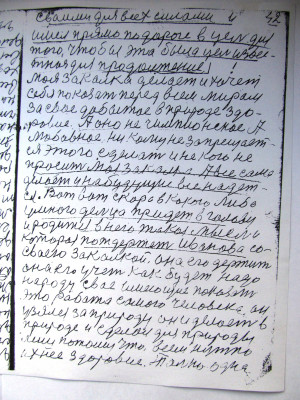 своими для всех силами и 42
имел прямо по дороге в цель для
того, чтобы эта была цель извес-
тная для продолжение
моя закалка делает и хочет
себя показат перед всем миром
за свое добытое в природе здо-
ровие. А оно не чемпионское А
любовное никому не запрещает-
ся этого сделат и не кого не
просит моя закалка А все сама
делает и на будущие все надеет-
ся. Вот вот скоро в какого либо
умного делца придет в голову
и родится в него такая мысль и
которая подержет Иванова со-
своею закалкой. она его держит
она его учет как будет надо
народу свое имеющие показат
это работа самого человека. он
взялся за природу он и делает в
природе и сделал для природы
потому что всем
ихнее здоровие. Только одна